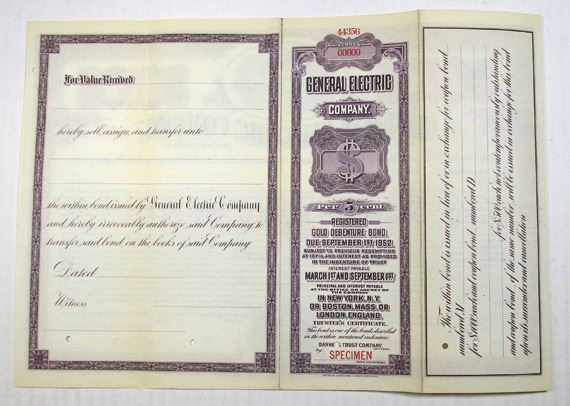 For Value Received
hereby sell, assign, and transfer unto
the within bond issued by General Electric Company
and hereby irrevocably authorize said Company to
transfer said bond on the books of said Company
Dated
Witness
44356
NUMBER
00000
GENERAL ELECTRIC
COMPANY.
$
PER 5 CENT
REGISTERED
GOLD DEBENTURE BOND
DUE SEPTEMBER 1ST 1952
SUBJECT TO PREVIOUS REDEMPTION
AT 107½ AND INTEREST AS PROVIDED
IN THE INDENTURE OF TRUST
INTEREST PAYABLE
MARCH 1ST AND SEPTEMBER 1ST
PRINCIPAL AND INTEREST PAYABLE
AT THE OFFICE OR AGENCY OF
THE COMPANY
IN NEW YORK, N.Y.
OR BOSTON, MASS. OR
LONDON, ENGLAND.
TRUSTEE'S CERTIFICATE.
This bond is one of the bonds described
in the within mentioned indenture.
TRUST COMPANY,
by SPECIMEN
The within bond is issued in lieu of or in exchange for coupon bond
numbered M
for $1000 each and coupon bond numbered D
for $500 each not contemporaneously outstanding
and coupon bond of the same number will be issued in exchange for this bond
upon its surrender and cancellation.